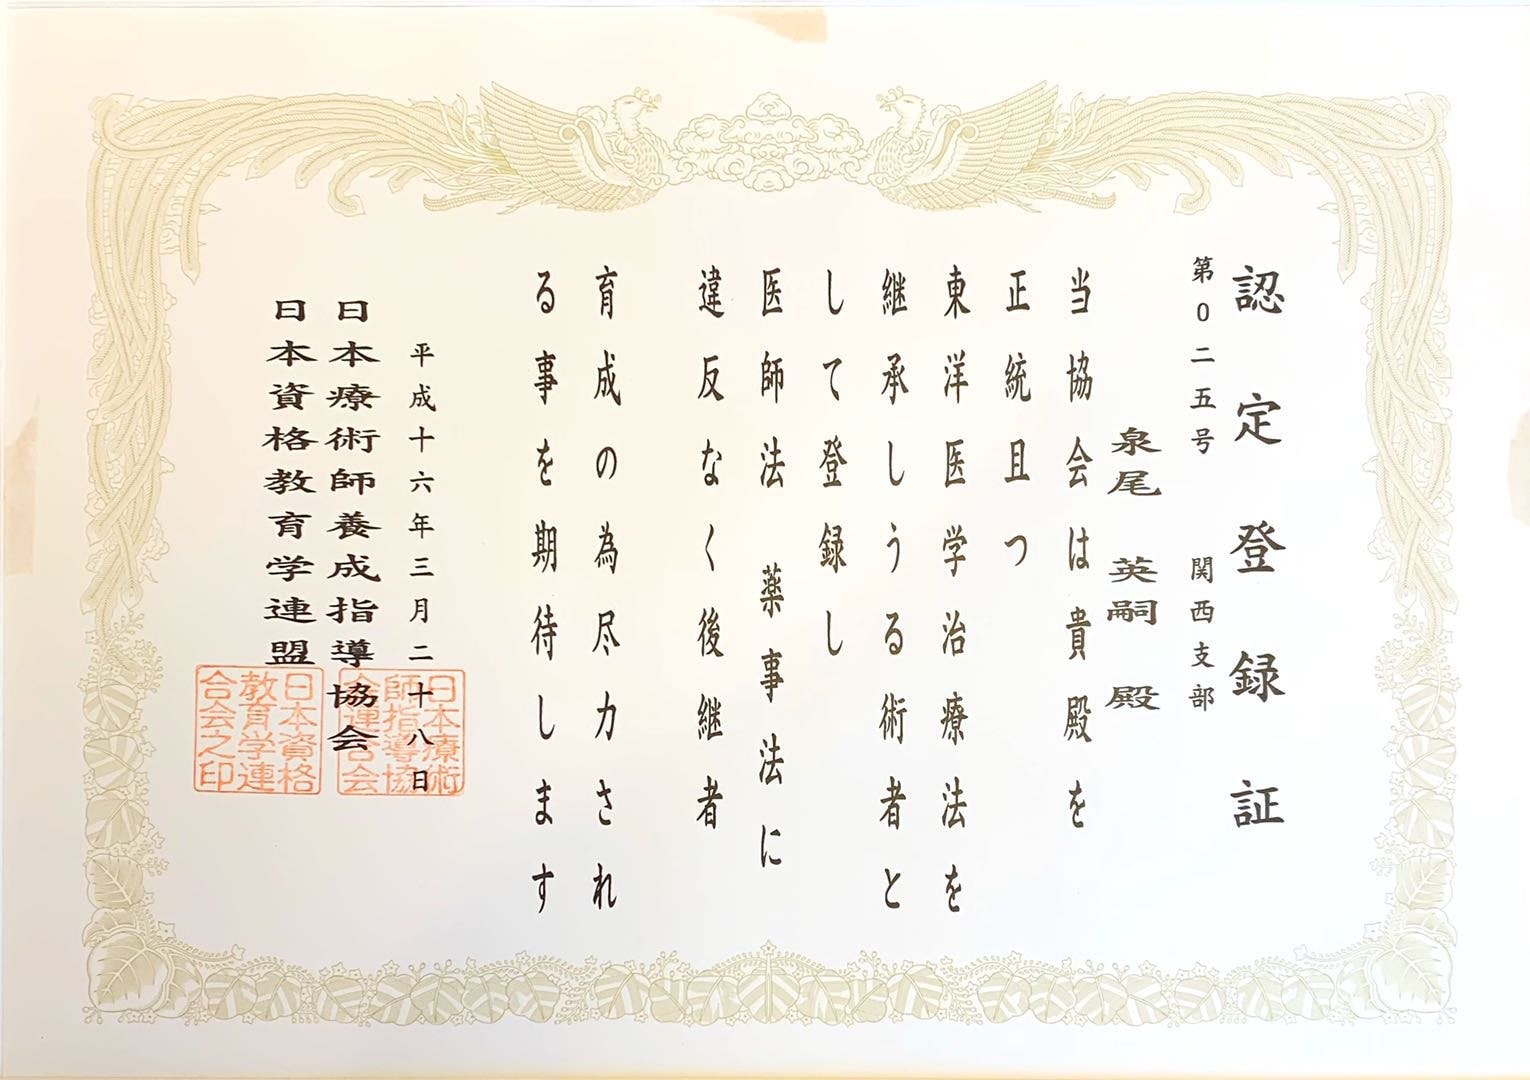 認定登録証
第0二五号　　関西支部
泉尾　英嗣　殿
当協会は貴殿を
正統且つ
東洋医学治療法を
継承しうる術者と
して登録し
医師法　薬事法に
違反なく後継者
育成の為尽力され
る事を期待します
平成十六年三月二十八日
日本療術師養成指導協会
日本資格教育学連盟
日本療術
師指導協
会連合会
日本資格
教育学連
合会之印